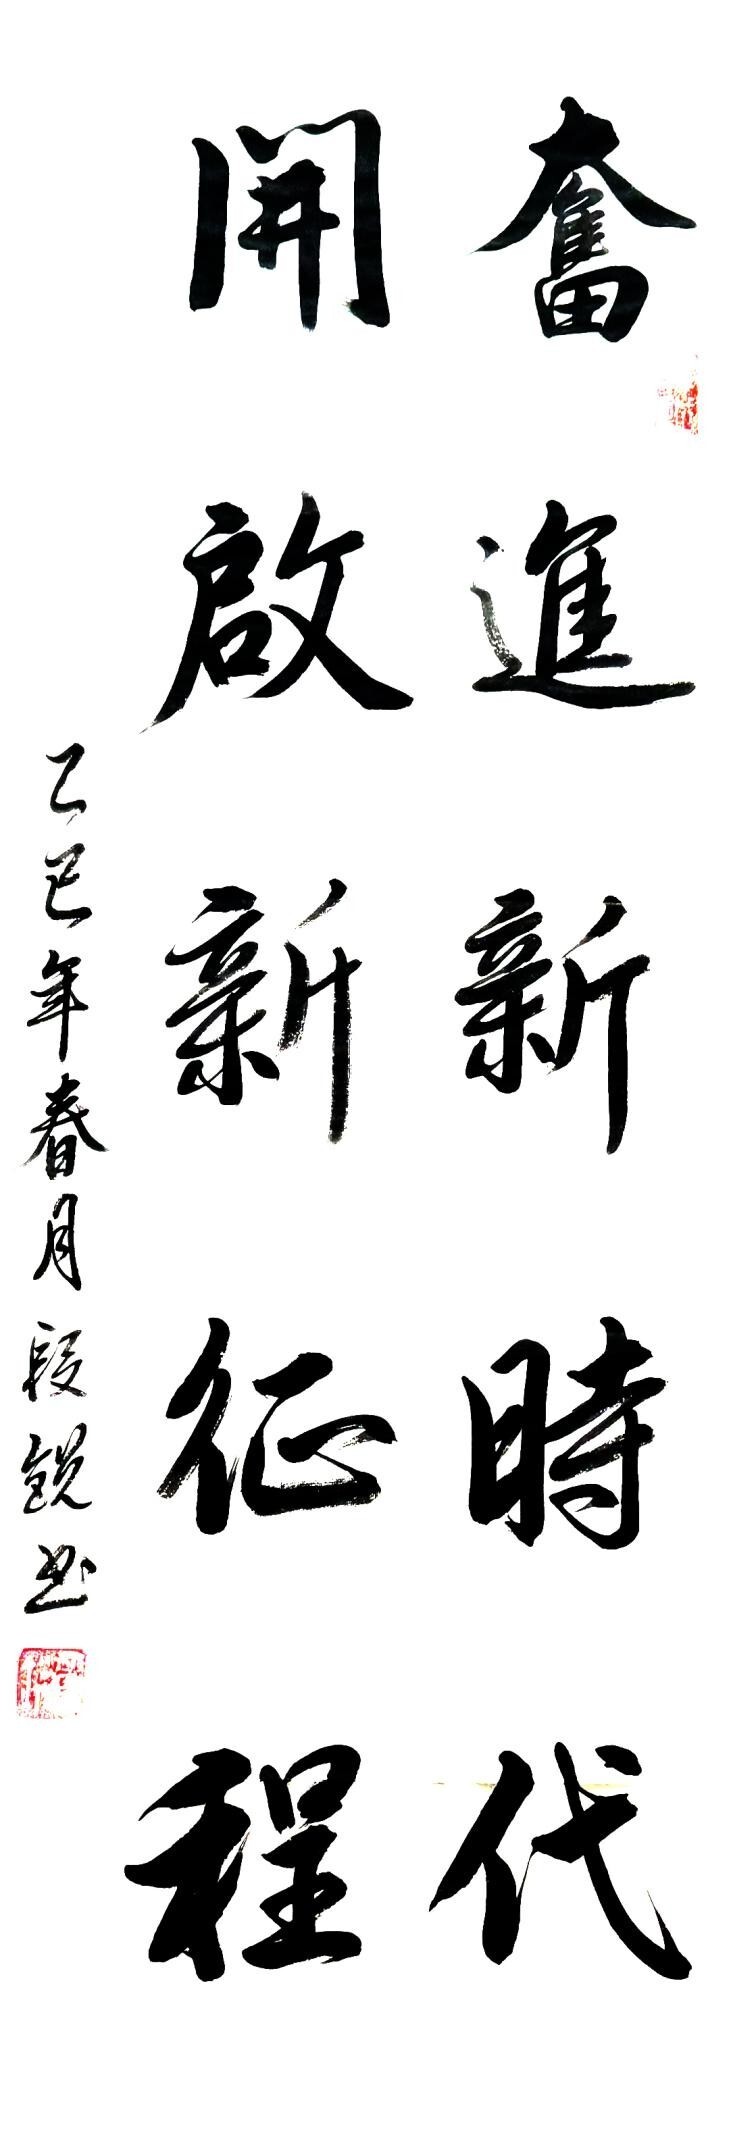 奮進新時代
開啟新征程
乙巳年春月段銳书